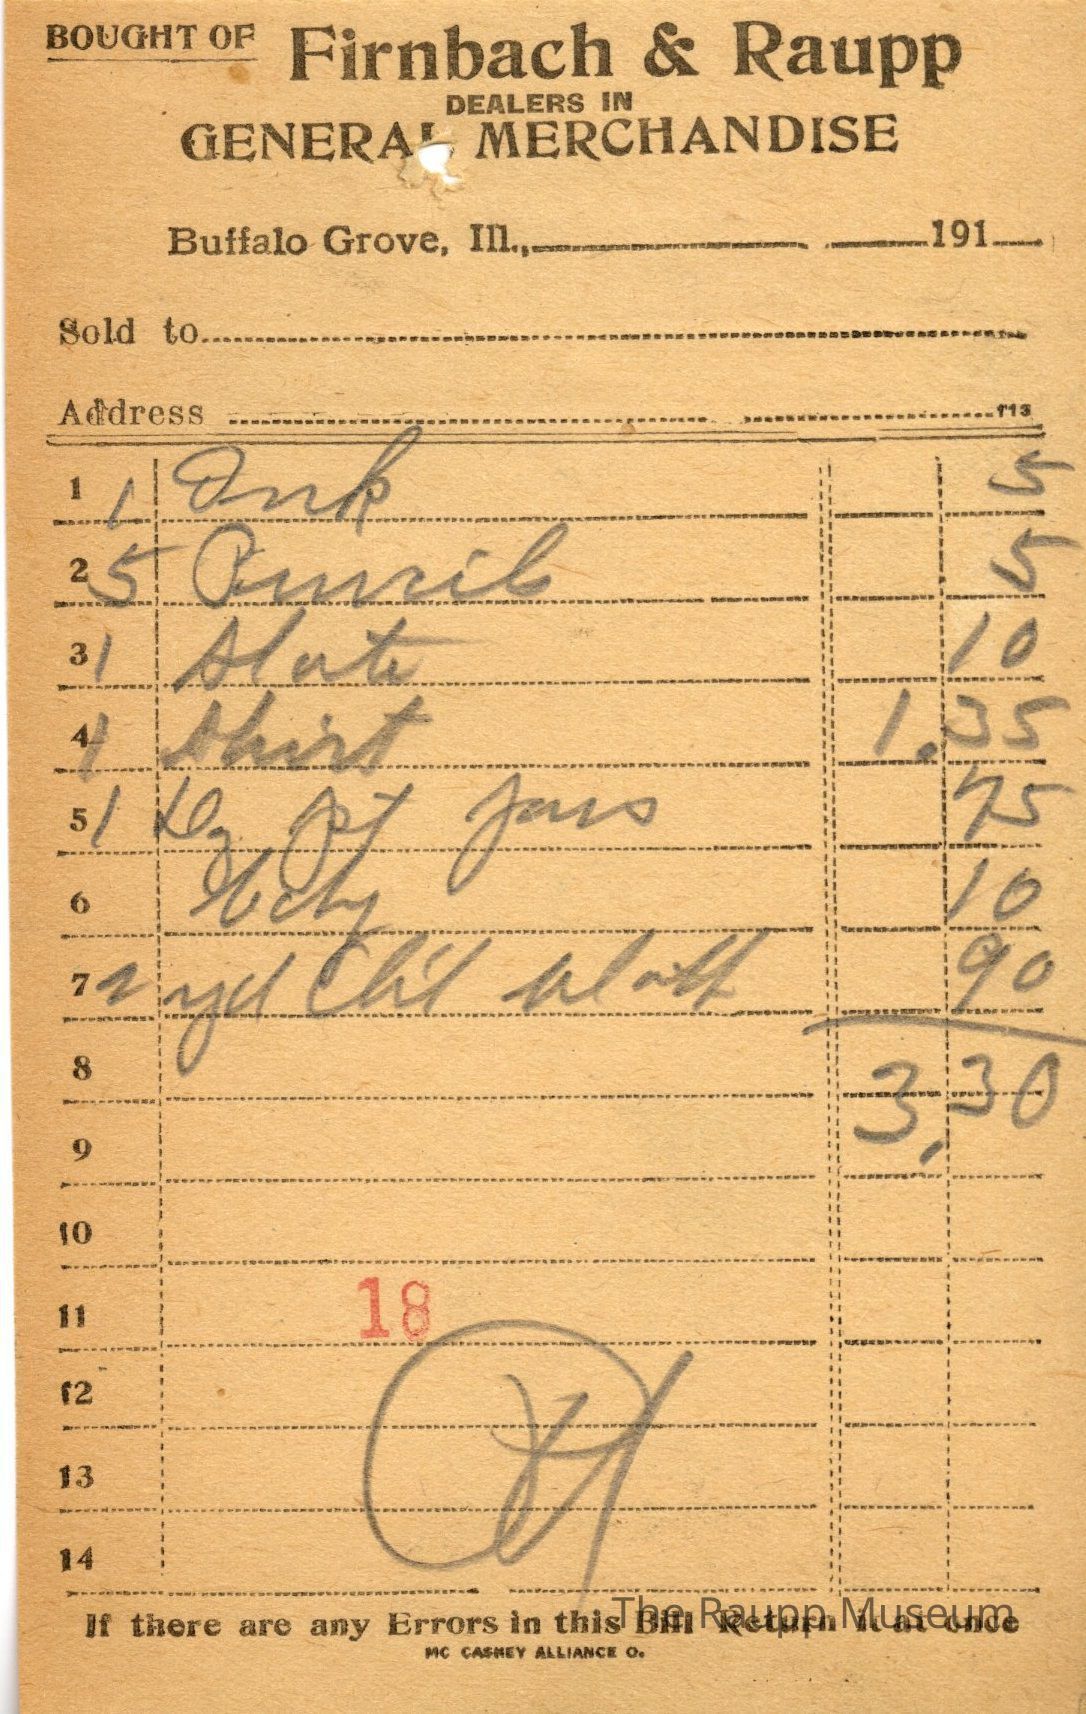 BOUGHT OF Firnbach & Raupp
DEALERS IN
GENERAL MERCHANDISE
Buffalo Grove, Ill., 191
Sold to
Address F13
1 1 Ink 5
2 5 Pencils 5
3 1 Slate 10
4 1 Shirt 1.35
5 1 Dz pt jars 75
6 10
7 2 yd Oil cloth 90
8 3.30
9
10
11 18
12
13
14
If there are any Errors in this Bill Return it at once
MC CASKEY ALLIANCE O.
The Raupp Museum